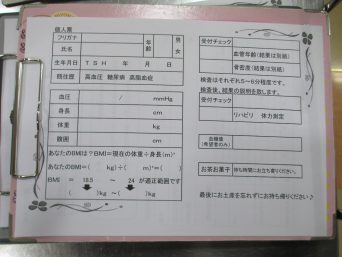 個人票
フリガナ
氏名
年齢
男
女
生年月日 T S H 年 月 日
既往歴 高血圧 糖尿病 高脂血症
血圧 / mmHg
身長 cm
体重 kg
腹囲 cm
あなたのBMIは?BMI=現在の体重÷身長(m)²
あなたのBMI=( kg)÷( m)²=( )
BMI = 18.5 ~ 24 が適正範囲です
( )kg ~ ( )kg
受付チェック
血管年齢(結果は別紙)
骨密度(結果は別紙)
検査はそれぞれ5~6分程度です。
検査後、結果の説明を致します。
受付チェック
リハビリ 体力測定
血糖値
(希望者のみ)
お茶お菓子 待ち時間にお立ち寄りください。
最後にお土産を忘れずにお持ち帰りください♪